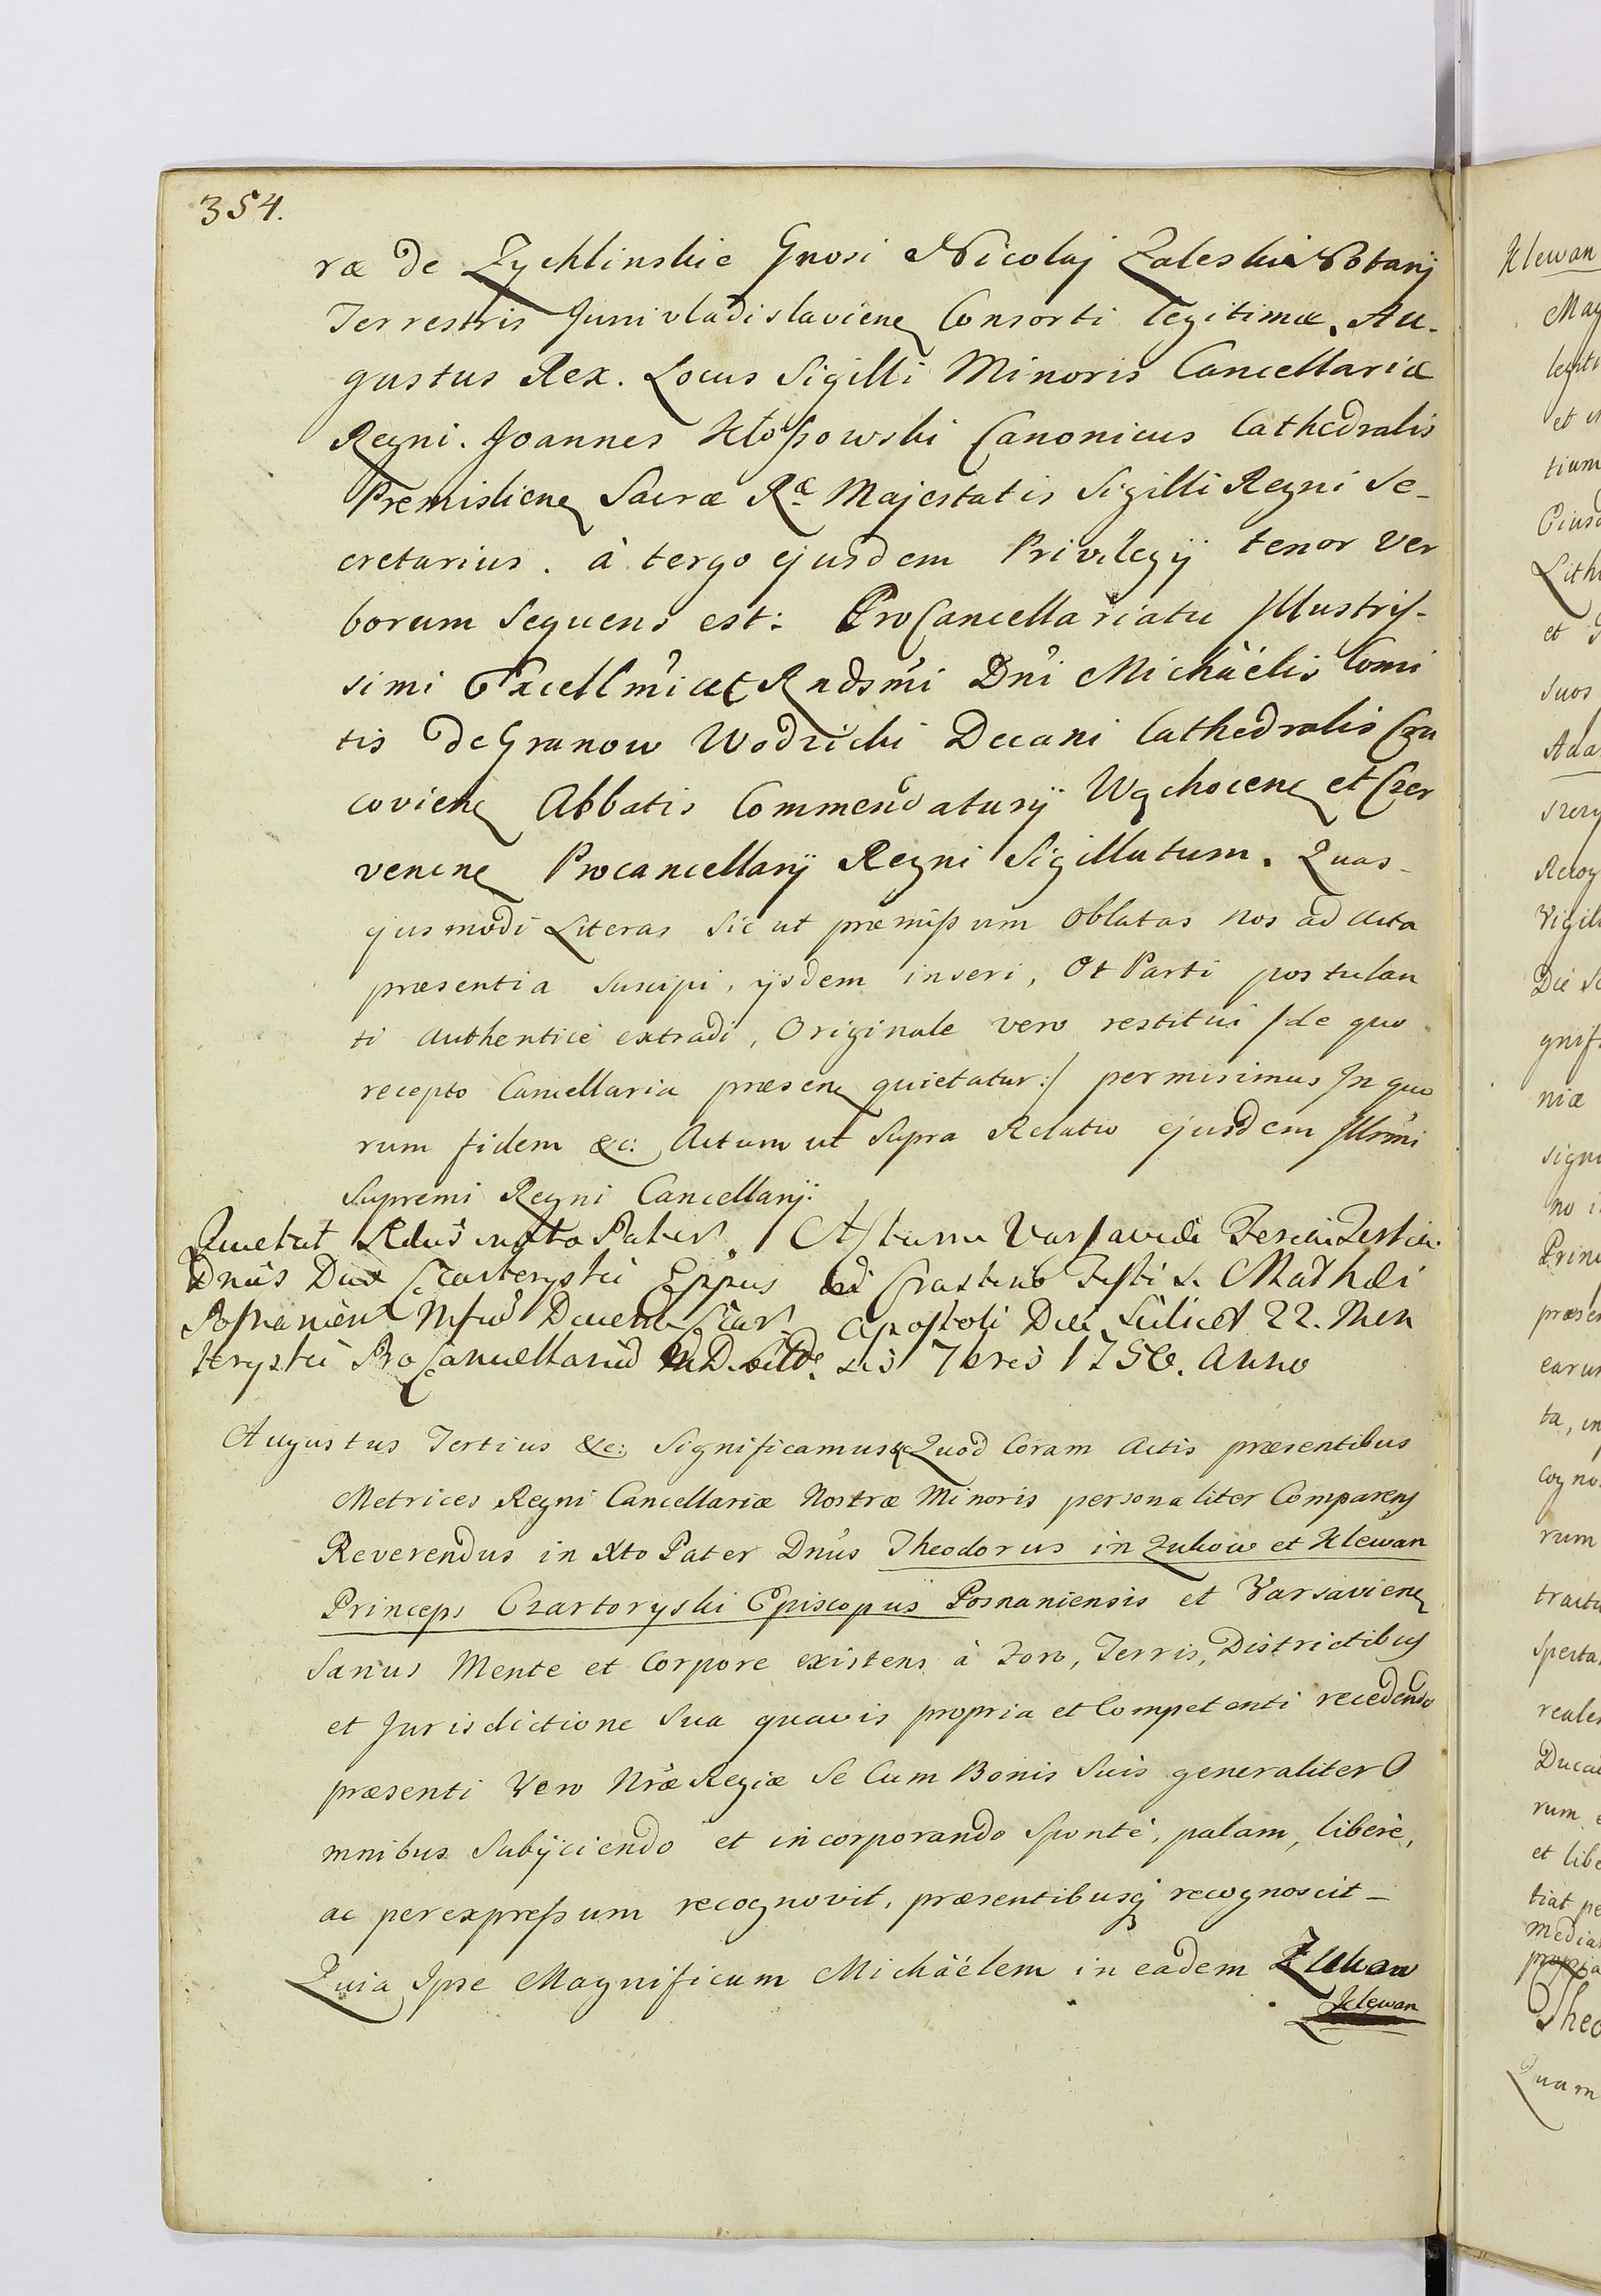 354.
ræ de Zychlinskie Gnosi Nicolaj Zaleski Notarij
Terrestris Junivladislaviens Consorti legitimæ. Au-
gustus Rex. Locus Sigilli Minoris Cancellariæ
Regni. Joannes Kłoſsowski Canonicus Cathedralis
Premisliens Sacræ Ræ Majestatis Sigilli Regni Se-
cretarius. à tergo ejusdem Privilegij tenor Ver
borum Sequens est: ProCancellariatu Illustriſ-
simi Excellmi et Rndsmi Dni Michäélis Comi
tis de Granow Wodzicki Decani Cathedralis Cra
coviens Abbatis Commendatarij Wąchocens et Czer
venens Procancellarij Regni Sigillatum. Quas-
ejusmodi Literas Sic ut præmiſsum Oblatas Nos ad Acta
præsentia Suscipi, ijsdem inseri, Et Parti postulan
ti Authenticè extradi, Originale vero restitui /:de quo
recepto Cancellaria præsens quietatur:/ permisimus In quo
rum fidem &c: Actum ut Supra Relatio ejusdem Illrmi
Supremi Regni Cancellarij.
Quietat Rdus in Xto Pater
Dnus Dux Czartoryski Eppus
Posnaniens Mfcum Ducem Czar
toryski ProCancellarium M.D. Litt.
Actum Varsaviæ Feria Tertia
Crastino Festi S. Mathæi
Apostoli Die Scilicet 22. Men
sis 7bris 1756. Anno
Augustus Tertius &c: Significamus &c Quod Coram Actis præsentibus
Metrices Regni Cancellariæ Nostræ Minoris personaliter Comparens
Reverendus in Xto Pater Dnus Theodorus in Zukow et Klewan
Princeps Czartoryski Episcopus Posnaniensis et Varsaviens
Sanus Mente et Corpore existens à Foro, Terris, Districtibus
et Jurisdictione Sua quavis propria et Competenti recedendo
præsenti Vero Nræ Regiæ Se Cum Bonis Suis generaliter O
mnibus Subijciendo et incorporando Spontè, palam, liberè,
ac perexpreſsum recognovit, præsentibusq recognoscit-
Quia Ipse Magnificum Michäélem in eadem Zukow
Klewan
Klewan